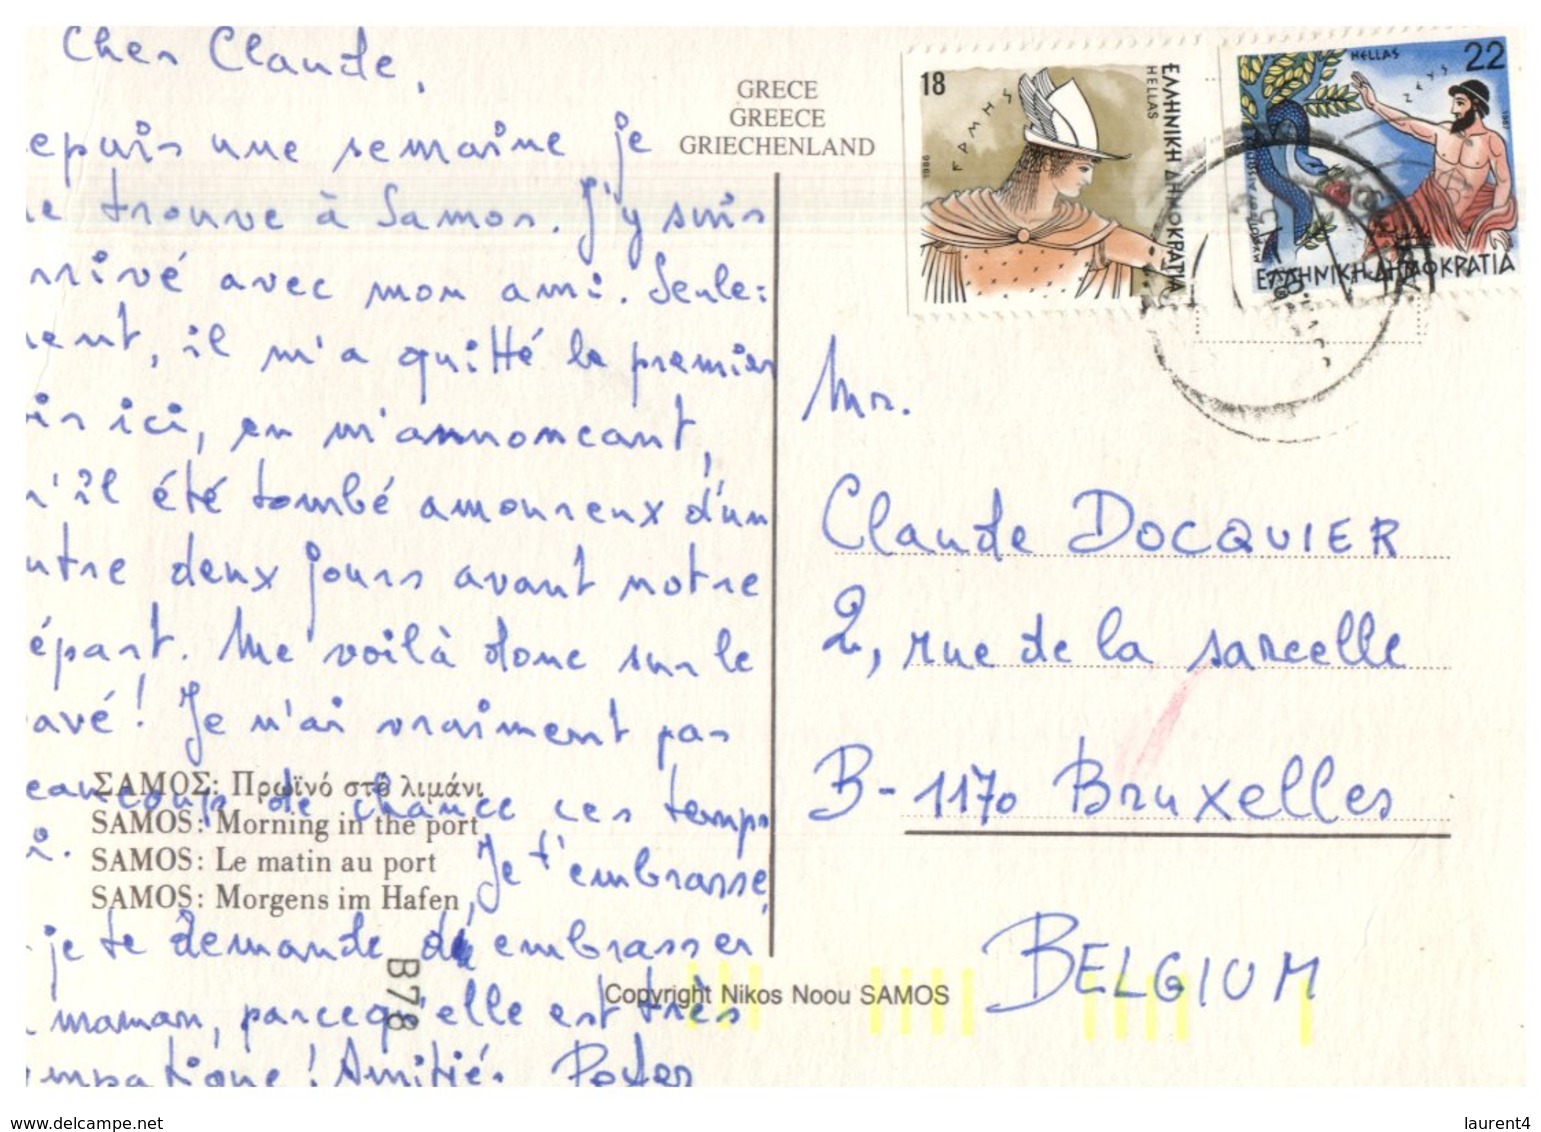 Cher Claude,
epuis une semaine je
e trouve à Samos. J'y suis
rrivé avec mon ami. Seule=
ment, il m'a quitté le premier
oir ici, en m'annoncant,
u'il été tombé amoureux d'un
utre deux jours avant notre
épart. Me voilà donc sur le
avé! Je n'ai vraiment pas
eaucoup de chance ces temps
Je t'embrasse,
je te demande d'embrasser
maman, parceq'elle est très
ympatique! Amitiés Peter
GRECE
GREECE
GRIECHENLAND
ΣΑΜΟΣ: Πρωϊνό στό λιμάνι
SAMOS: Morning in the port
SAMOS: Le matin au port
SAMOS: Morgens im Hafen
B78
Copyright Nikos Noou SAMOS
18
ΕΛΛΗΝΙΚΗ ΔΗΜΟΚΡΑΤΙΑ
HELLAS
1986
HELLAS
22
1987
ΕΛΛΗΝΙΚΗ ΔΗΜΟΚΡΑΤΙΑ
Mr.
Claude DOCQUIER
2, rue de la sarcelle
B-1170 Bruxelles
BELGIUM
www.delcampe.net
laurent4